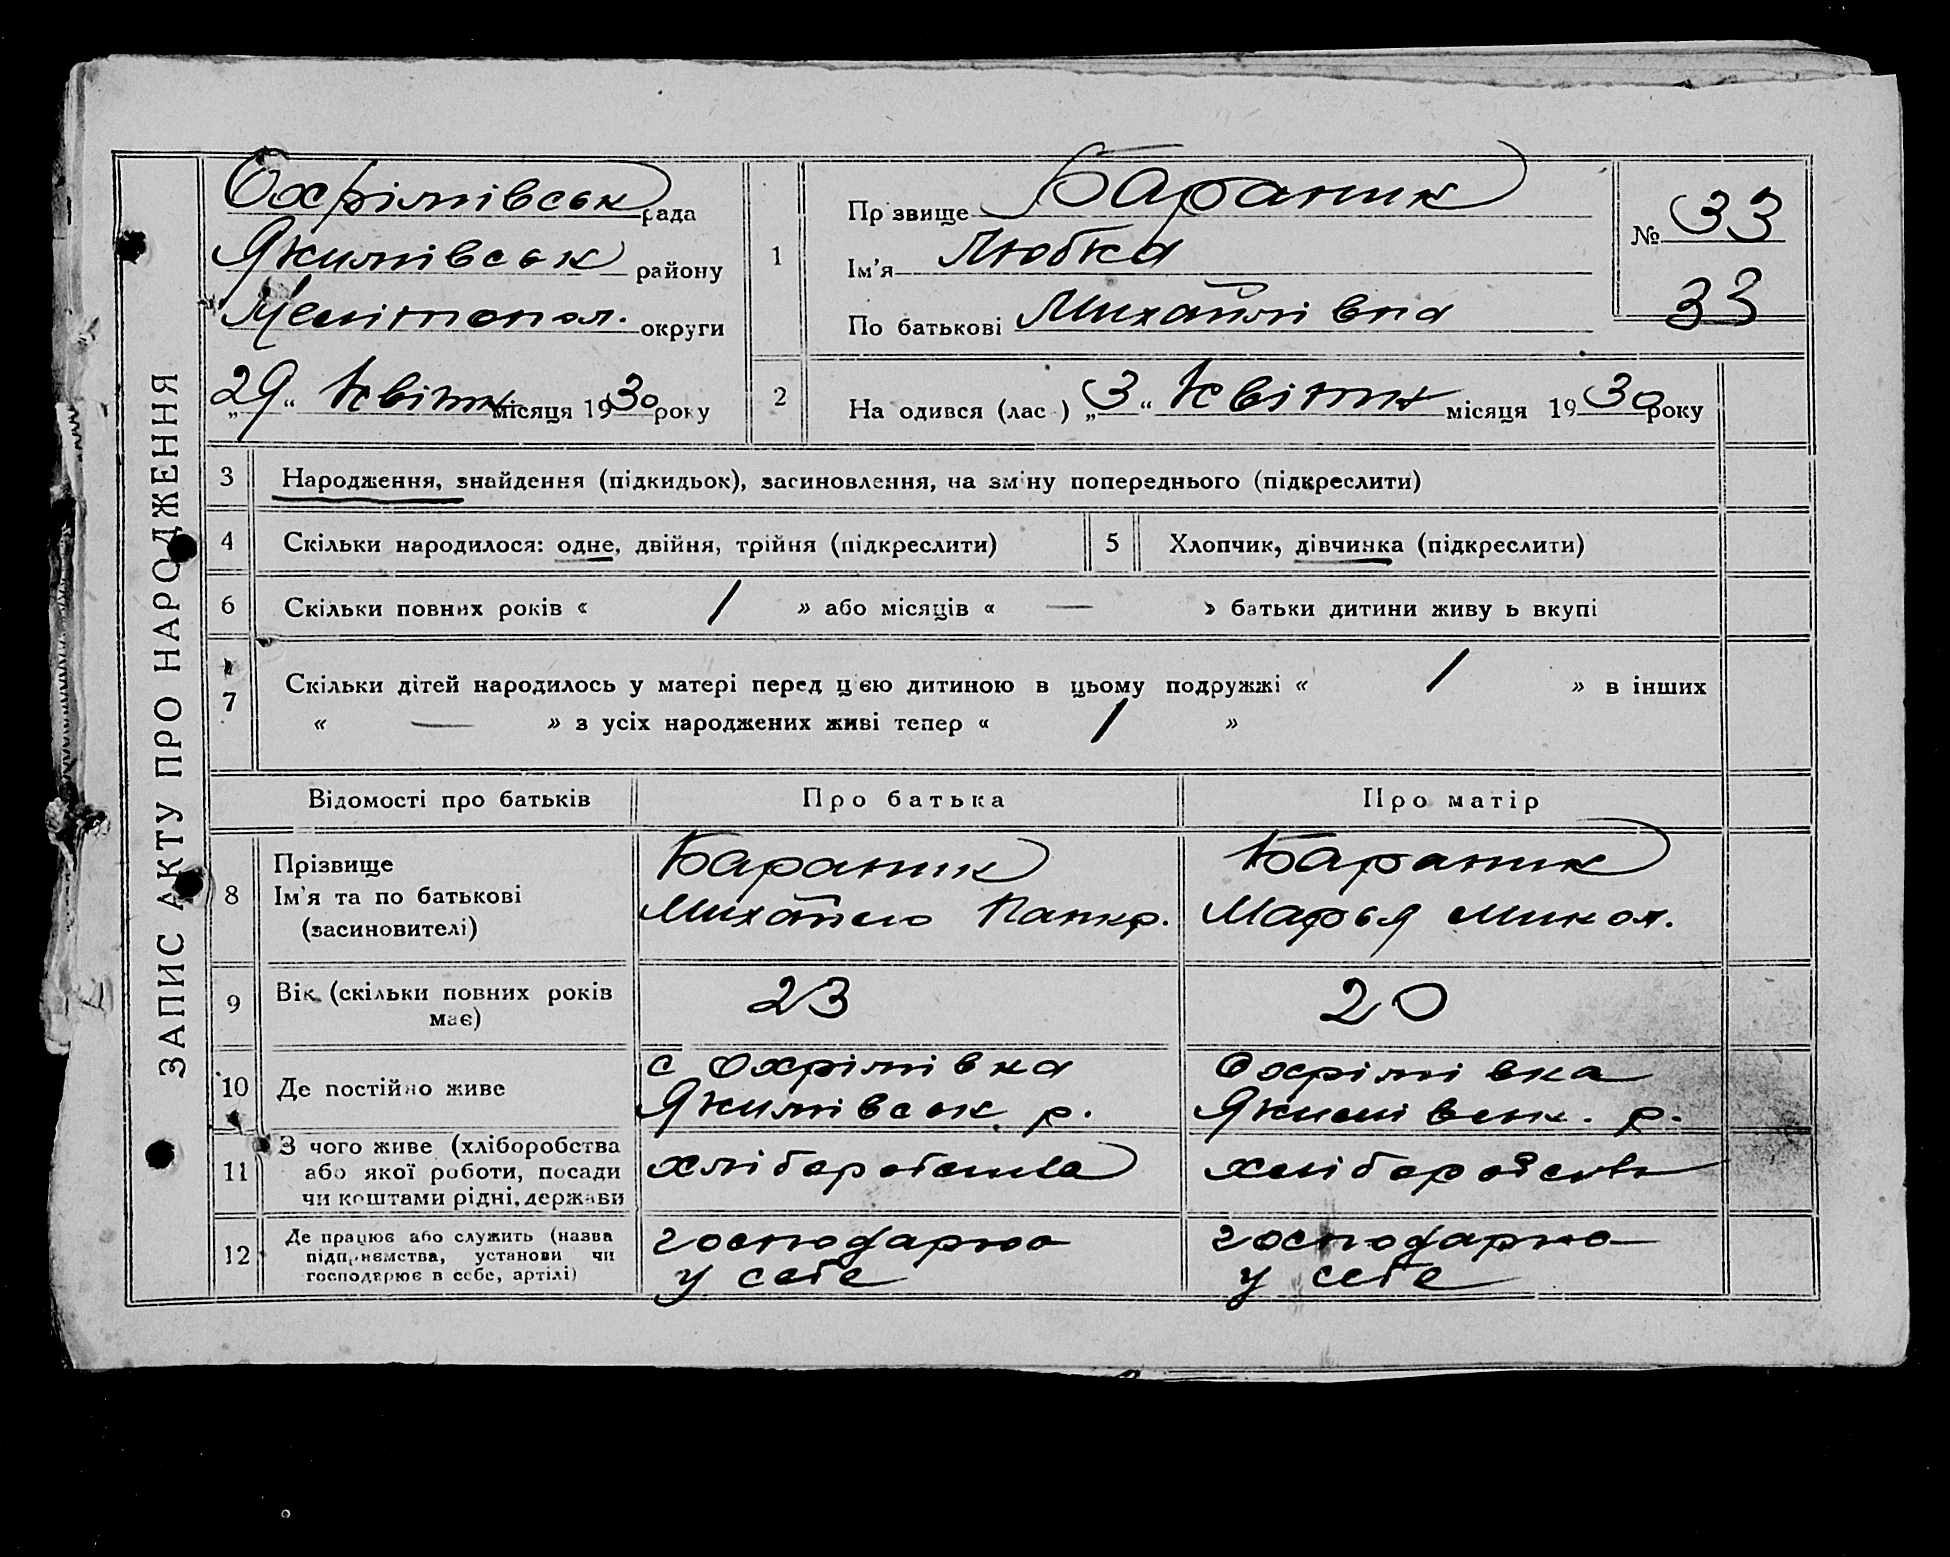 ЗАПИС АКТУ ПРО НАРОДЖЕННЯ
Охрімівськ рада
Якимівськ району
Мелітопол. округи
„29“ Квітня місяця 1930 року
1
Прізвище Бараник
Ім'я Любка
По батькові Михайлівна
№ 33
33
2
На одився (лас ) „3“ Квітня місяця 1930 року
3 Народження, знайдення (підкидьок), засиновлення, на зміну попереднього (підкреслити)
4 Скільки народилося: одне, двійня, трійня (підкреслити)
5 Хлопчик, дівчинка (підкреслити)
6 Скільки повних років « 1 » або місяців « — » батьки дитини живу ь вкупі
7 Скільки дітей народилось у матері перед цією дитиною в цьому подружжі « 1 » в інших
« — » з усіх народжених живі тепер « 1 »
Відомості про батьків
Про батька
Про матір
8 Прізвище
Ім'я та по батькові
(засиновителі)
Бараник
Михайло Панкр.
Бараник
Марья Микол.
9 Вік (скільки повних років
має)
23
20
10 Де постійно живе
с Охрімівка
Якимівськ р.
Охрімівка
Якимівськ. р.
11 З чого живе (хліборобства
або якої роботи, посади
чи коштами рідні, держави
хліборобства
хліборобств
12 Де працює або служить (назва
підприємства, установи чи
господарює в себе, артілі)
господарює
у себе
господарює
у себе